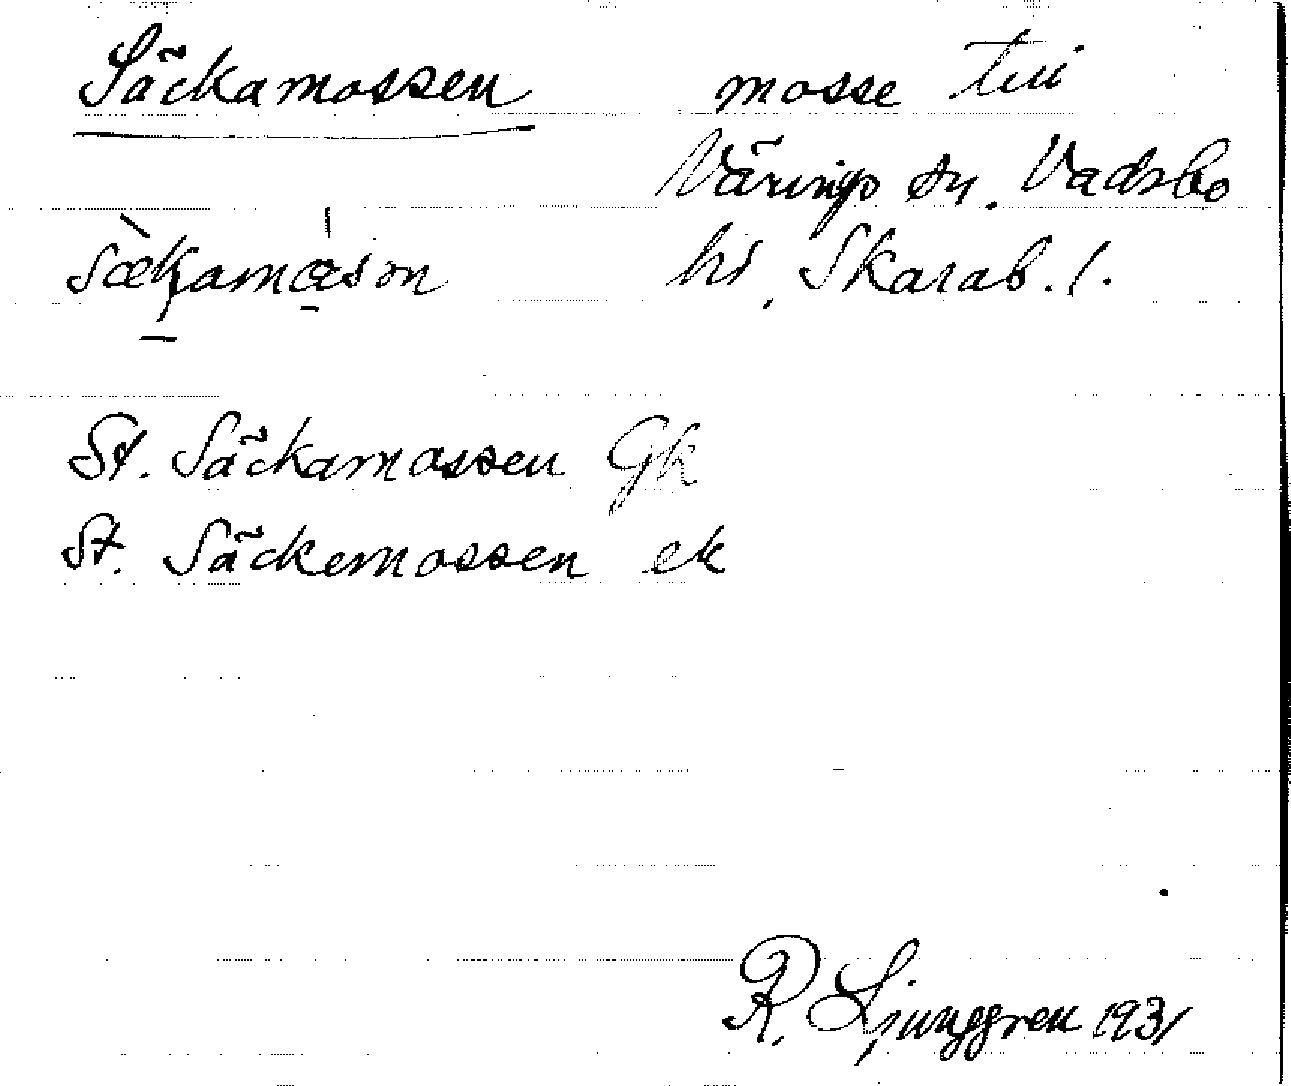 Säckamossen mosse
Värings sn. Vadsbo
hd, Skarab. l.
St. Säckamossen Gk
St. Säckemossen ek
R. Ljunggren 1931